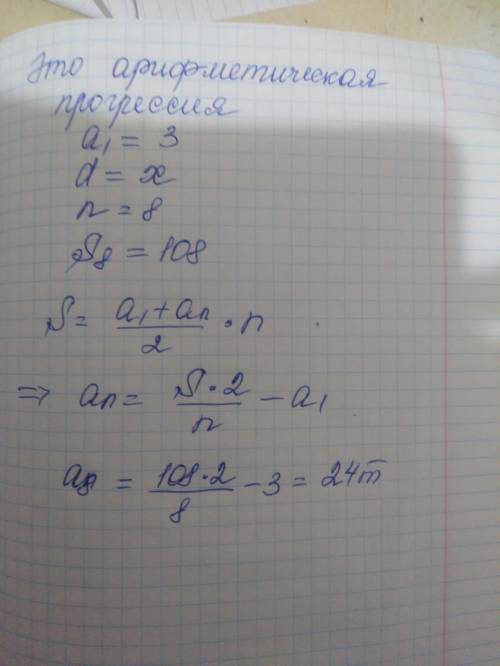 Это арифметическая
прогрессия
a₁ = 3
d = x
n = 8
S₈ = 108
S = (a₁ + aₙ)/2 · n
⇒ aₙ = (S · 2)/n − a₁
a₈ = (108 · 2)/8 − 3 = 24т